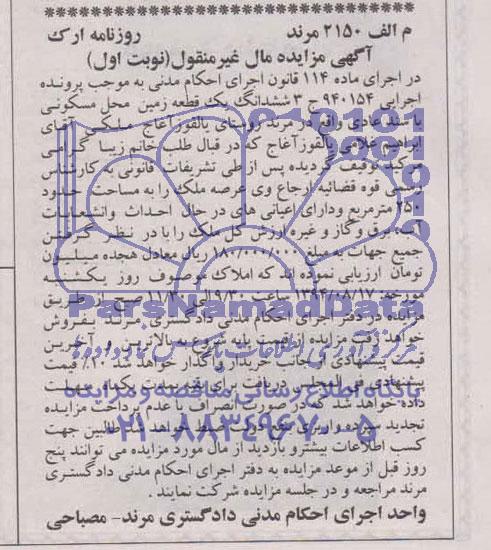 م الف ۲۱۵۰ مرند روزنامه ارک
آگهی مزایده مال غیرمنقول(نوبت اول)
در اجرای ماده ۱۱۴ قانون اجرای احکام مدنی به موجب پرونده
اجرایی ۹۴۰۱۵۴ ج ۳ ششدانگ یک قطعه زمین محل مسکونی
با سند عادی واقع در مرند روستای یالقوزآغاج ملکی آقای
ابراهیم غلامی یالقوزآغاج که در قبال طلب خانم زیبا گرامی
مرکید توقیف گردیده پس از طی تشریفات قانونی به کارشناس
رسمی قوه قضائیه ارجاع وی عرصه ملک را به مساحت حدود
۲۵۰ مترمربع ودارای اعیانی های در حال احداث وانشعابات
آب، برق وگاز و غیره ارزش کل ملک را با در نظر گرفتن
جمیع جهات به مبلغ ۱۸۰/۰۰۰/۰۰۰ ریال معادل هجده میلیون
تومان ارزیابی نموده اند که املاک موصوف روز یکشنبه
مورخه ۱۳۹۴/۰۸/۱۷ ساعت ۹/۳۰ الی ۱۱/۳۰ صبح از طریق
مزایده در دفتر اجرای احکام مدنی دادگستری مرند بفروش
خواهد رفت مزایده از قیمت پایه شروع به بالاترین و آخرین
قیمت پیشنهادی از جانب خریدار واگذار خواهد شد ۱۰٪ قیمت
پیشنهادی فی المجلس دریافت برای بقیه بمدت یکماه مهلت
داده خواهد شد که در صورت انصراف یا عدم پرداخت مزایده
تجدید سپرده واریزی بنفع دولت ضبط خواهد شد طالبین جهت
کسب اطلاعات بیشترو بازدید از مال مورد مزایده می توانند پنج
روز قبل از موعد مزایده به دفتر اجرای احکام مدنی دادگستری
مرند مراجعه و در جلسه مزایده شرکت نمایند .
واحد اجرای احکام مدنی دادگستری مرند- مصباحی
ParsNamadData
پایگاه اطلاع رسانی مناقصه و مزایده
۰۲۱-۸۸۳۴۹۶۷۰-۵